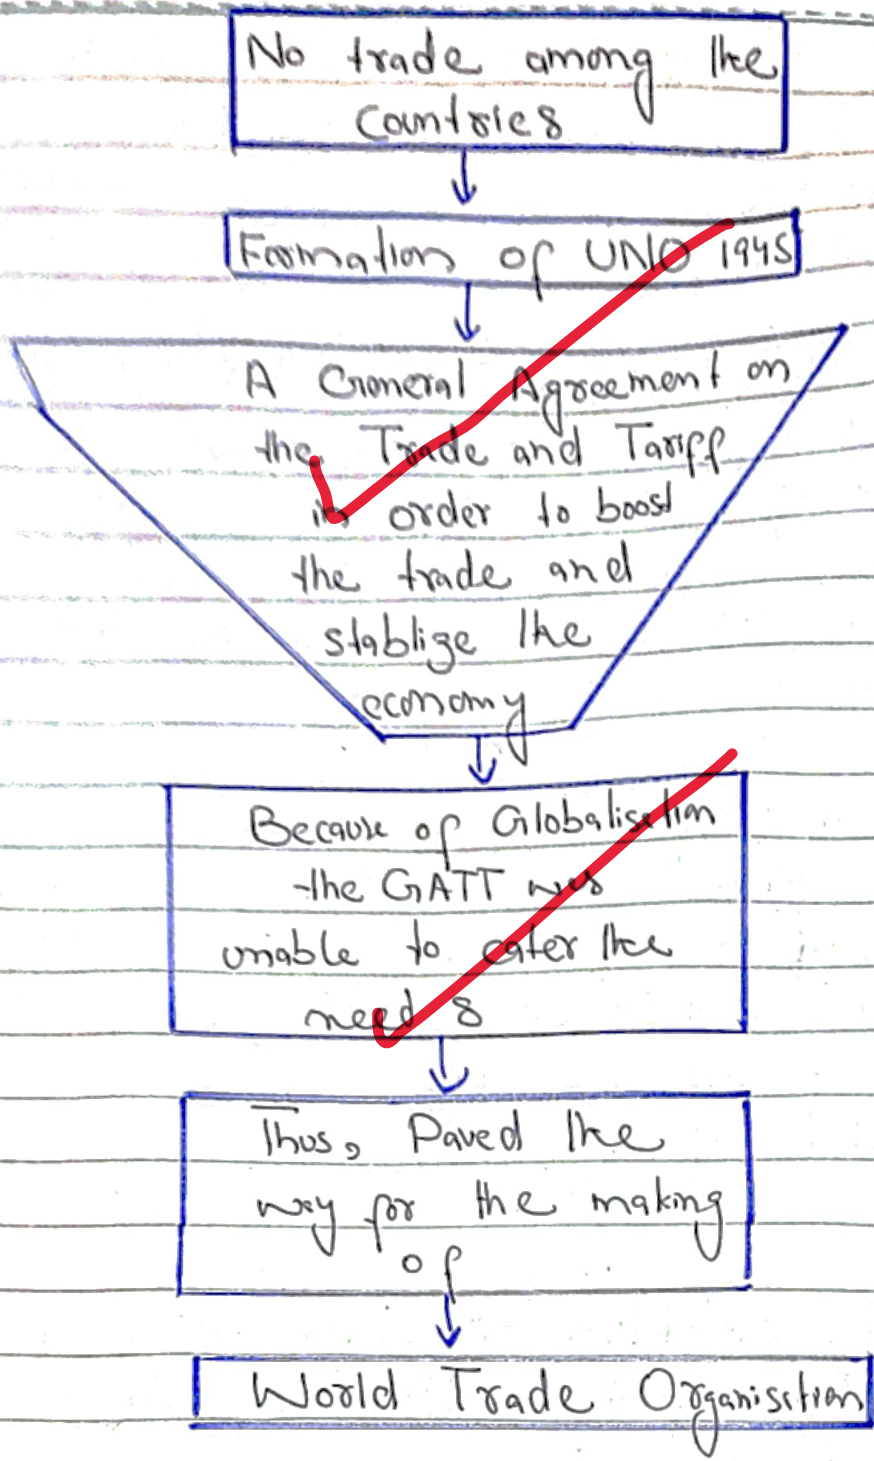 No trade among the
Countries
Formation of UNO 1945
A General Agreement on
the Trade and Tariff
in order to boost
the trade and
stablize the
economy
Because of Globalisation
the GATT was
unable to cater the
needs
Thus, Paved the
way for the making
of
World Trade Organisation